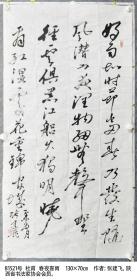 好雨知时节当春乃发生随
风潜入夜润物细无声野
径云俱黑江船火独明晓
看红湿处花重锦官城
BT521号 杜甫 春夜喜雨 130×70cm 作者:张建飞,陕
西省书法家协会会员。